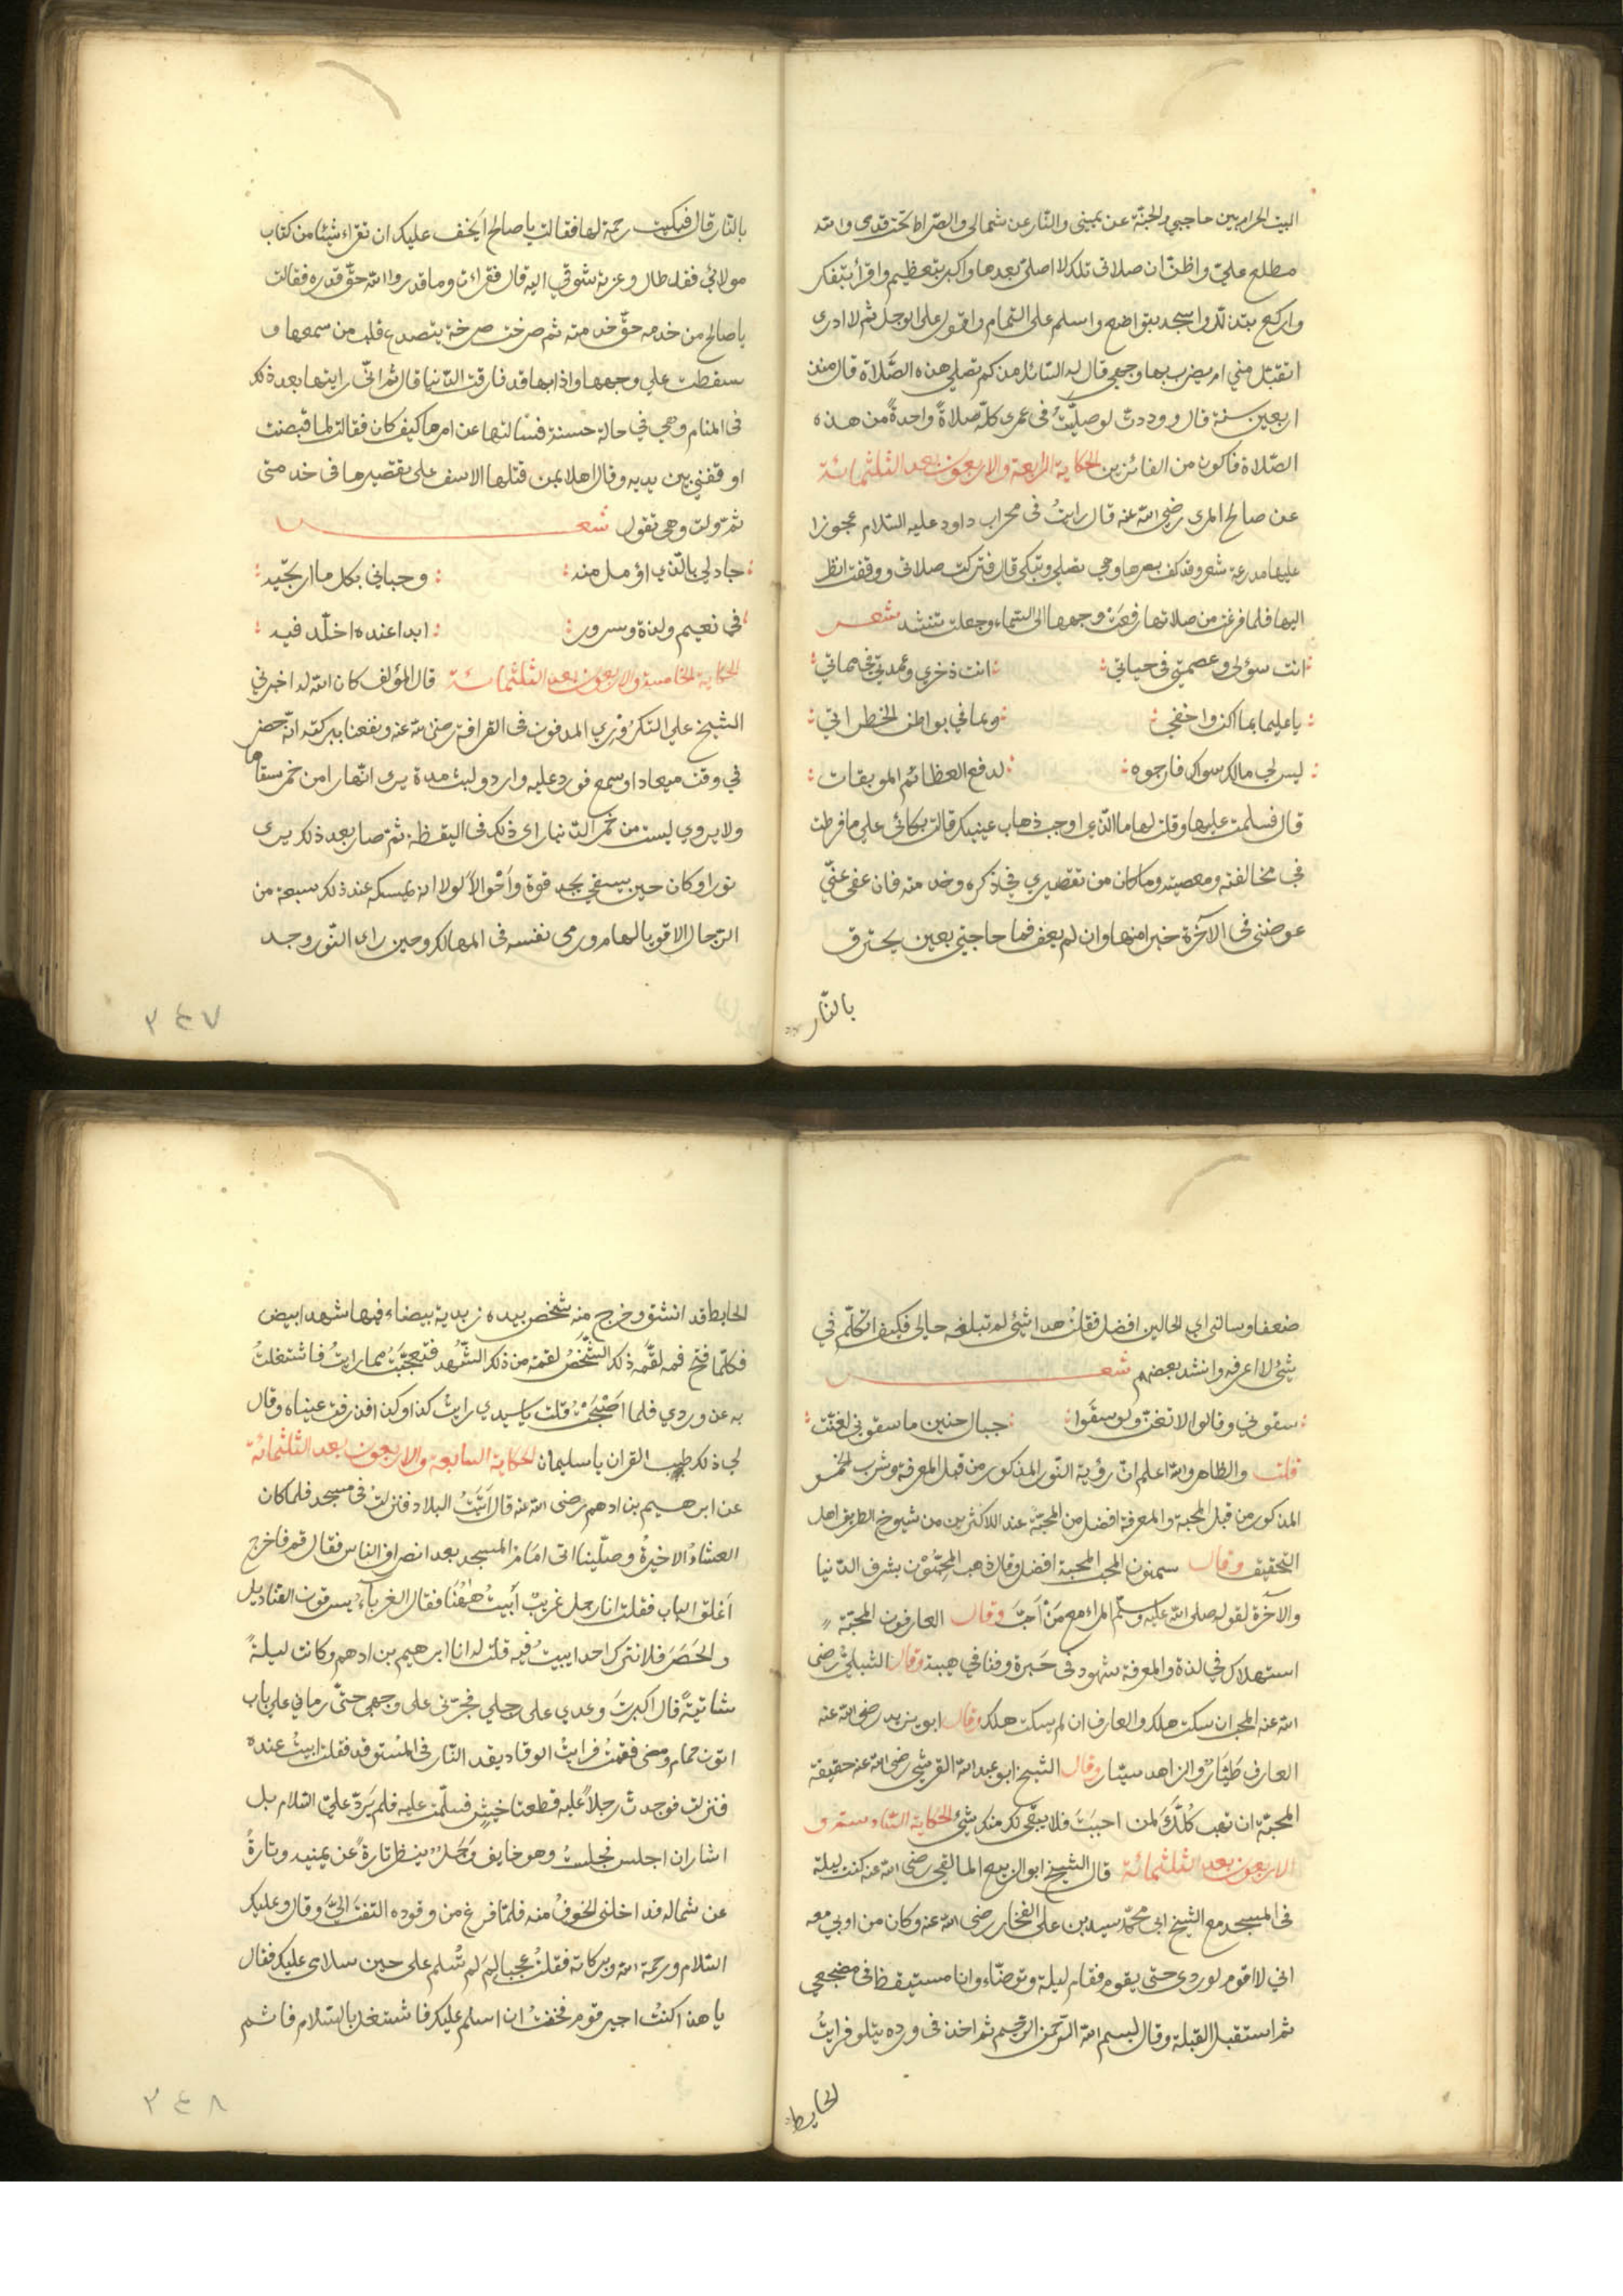 البيت الحرام بين حاجبي والجنة عن يميني والنار عن شمالي والصراط تحت قدمي والله
مطلع علي واظن ان صلاتي تلك لا اصلي بعدها واكبر بتعظيم واقرأ بتفكر
واركع بتذلل واسجد بتواضع واسلم على التمام واقول على الوجل ثم لا ادرى
اتقبل مني ام يضرب بها وجهي قال له السائل منذ كم تصلي هذه الصلاة قال منذ
اربعين سنة قال وددت لو صليت فى عمرى كله صلاةً واحدةً من هذه
الصلاة فاكون من الفائزين الحكاية الرابعة والاربعون بعد الثلثمائة
عن صالح المرى رضى الله عنه قال رايت فى محراب داود عليه السلام عجوزا
عليها مدرعة شعر وقد كف بصرها وهي تصلي وتبكى قال فتركت صلاتى ووقفت انظر
اليها فلما فرغت من صلاتها رفعت وجهها الى السماء وجعلت تنشد شعر
انت سؤلى وعصمتي فى حياتي انت ذخري وعمدتي فى مماتي
يا عليما بما اكن واخفي وبما في بواطن الخطراتي
ليس لي مالك سواك فارجوه لدفع العظائم الموبقات
قال فسلمت عليها وقلت لها ما الذي اوجب ذهاب عينيك قالت بكائي علي ما فرطت
في مخالفته ومعصيته وما كان من تقصيري في ذكره وخدمته فان عفى عنّي
عوضنى فى الآخرة خيرا منها وان لم يعف فما حاجتي بعين يحترق
بالنّار
بالنّار قال فبكيت رحمة لها فقالت يا صالح ايخف عليك ان تقراء شيئا من كتاب
مولائي فقد طال وعزته شوقي اليه قال فقراءت وما قدروا الله حقّ قدره فقالت
يا صالح من خدمه حقّ خدمته ثم صرخت صرخة يتصدع قلب من سمعها و
سقطت علي وجهها واذا بها قد فارقت الدّنيا قال ثم انّي رايتها بعد ذلك
فى المنام وهي في حالة حسنة فسالتها عن امرها كيف كان فقالت لما قبضت
اوقفني بين يديه وقال اهلا بمن قتلها الاسف على تقصيرها فى خدمتى
ثم ولت وهى تقول شعر
جاد لي بالّذي اؤمل منه وحباني بكل ما ارتجيه
فى نعيم ولذة وسرور ابدا عنده اخلّد فيه
الحكاية الخامسة والاربعون بعد الثلثمائة قال المؤلف كان الله له اخبرني
الشيخ علي التكروري المدفون فى القرافة رضى الله عنه ونفعنا ببركته انّه حضر
في وقت ميعادا وسمع فورد عليه وارد ولبث مدة يرى انهارا من خمر سقاها
ولا يروي ليست من خمر الدّنيا راى ذلك فى اليقظة ثم صار بعد ذلك يرى
نورا وكان حين يسقي يجد قوة وأحْوالاً لولا انه يمسكه عند ذلك سبعة من
الرجال الاقويا لهام ورمى نفسه فى المهالك وحين راى النّور وجد
٣٤٧
ضعفا وسالنى اي الحالين افضل فقلت هذا شئ لم تبلغه حالى فكيف اتكلّم في
شئ لا اعرفه وانشد بعضهم شعر
سقوني وقالوا لا تغن ولو سقوا جبال حنين ما سقوني لغنّت
قلت والظاهر والله اعلم انّ رؤية النّور المذكور من قبل المعرفة وشرب الخمر
المذكور من قبل المحبة والمعرفة افضل من المحبّة عند الاكثرين من شيوخ الطريق اهل
التحقيق وقال سمنون المحب المحبة افضل وقال ذهب المحبّون بشرف الدّنيا
والآخرة لقوله صلى الله عليه وسلّم المراء مع مَنْ اَحبّ وقال العارفون المحبّة
استهلاك في لذة والمعرفة شهود فى حَيرة وفنا في هيبة وقال الشبلي رضى
الله عنه المحب ان سكت هلك والعارف ان لم يسكت هلك وقال ابو يزيد رضى الله عنه
العارف طيّار والزاهد سيّار وقال الشيخ ابو عبد الله القرشي رضى الله عنه حقيقة
المحبّة ان تهب كُلّكَ لمن احببت فلا يبقى لك منك شئ الحكاية السّادسة و
الاربعون بعد الثلثمائة قال الشيخ ابو الربيع المالقي رضى الله عنه كنت ليلة
فى المسجد مع الشيخ ابى محمّد سيد بن على الفخار رضى الله عنه وكان من ادبي معه
اني لا اقوم لوردى حتى يقوم فقام ليلة وتوضّاء وانا مستيقظ فى مضجعي
ثم استقبل القبلة وقال بسم الله الرّحمن الرّحيم ثم اخذ فى ورده يتلو فرايتُ
الحايط
الحايط قد انشق وخرج منه شخص بيده زبدية بيضاء فيها شهد ابيض
فكلّما فتح فمه لقّمه ذلك الشّخصُ لقمة من ذلك الشّهد فتعجّبتُ مما رايتُ فاشتغلتُ
به عن وردي فلما اصْبَحْتُ قلت يا سيدي رايتُ كذا وكذا فذرفت عيناه وقال
لى ذلك طيب القران يا سليمان الحكاية السابعة والاربعون بعد الثلثمائة
عن ابرهيم بن ادهم رضى الله عنه قال اتَيْتُ البلاد فنزلتُ فى مسجد فلما كان
العشاءُ الاخيرةُ وصلّينا اتى امامُ المسجد بعد انصراف الناس فقال قم فاخرج
اَغلق الباب فقلت انا رجل غريبٌ اَبيتُ هٰهُنا فقال الغرباءُ يسرقون القناديل
والحَصَر فلا نترك احدا يبيت فيه قلت له انا ابرهيم بن ادهم وكانت ليلةً
شاتيةً قال اكبرتَ وعدي على رجلي فجرّنى على وجهى حتّى رماني علي باب
اتون حمام ومضى فقمتُ فرايتُ الوقاد يقد النّار فى المستوقد فقلت ابيتُ عنده
فنزلت فوجدتُ رجلاً عليه قطعتا خيشٍ فسلّمت عليه فلم يَردّ عليّ السّلام بل
اشار ان اجلس فجلست وهو خايف وَجَل ينظر تارةً عن يمينه وتارةً
عن شماله فداخلنى الخوفُ منه فلمّا فرغ من وقوده التفتَ اليّ وقال وعليك
السّلام ورحمة الله وبركاته فقلتُ عجبا لِمَ لم تُسلم على حين سلامى عليك فقال
يا هذا كنتُ اجير قوم فخفتُ ان اسلم عليك فاشتغل بالسّلام فاثم
٣٤٨